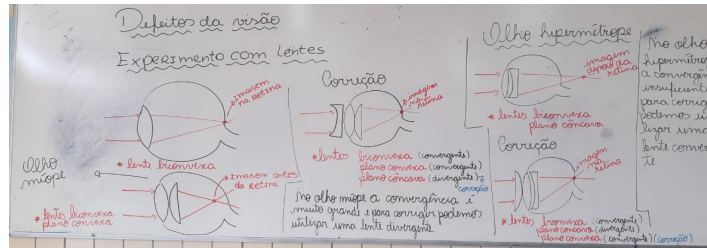 Defeitos da visão
Experimento com lentes
imagem
na retina
* lente biconvexa
Olho
míope
imagem antes
da retina
* lentes biconvexa
plano convexa
Correção
imagem
na
retina
* lentes biconvexa (convergente)
plano convexa (convergente)
plano côncava (divergente)
correção
No olho míope a convergência é
muito grande e para corrigir podemos
utilizar uma lente divergente
Olho hipermétrope
imagem
depois da
retina
* lentes biconvexa
plano côncava
Correção
imagem
na
retina
* lentes biconvexa (convergente)
plano côncava (divergente)
plano convexa (convergente) (correção)
No olho
hipermétro
a convergên
insuficient
para corrig
podemos u
lizar uma
lente conver
te